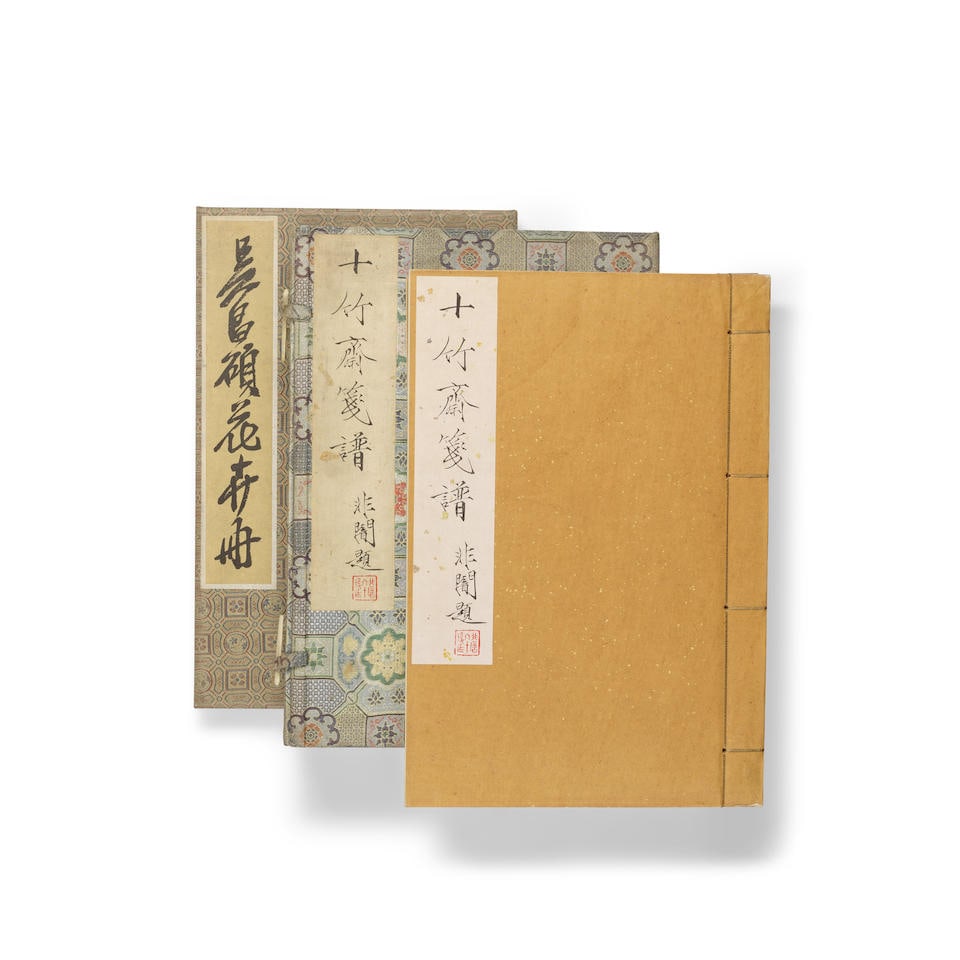 吳昌碩花卉冊
十竹齋箋譜
非闇題
十竹齋箋譜
非闇題